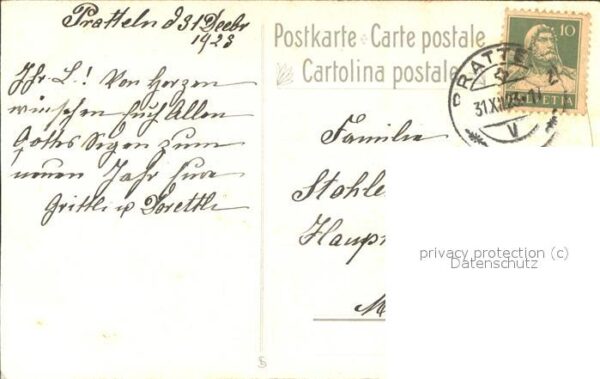 Pratteln d 31 Decbr
1923
Ihr L.! Von Herzen
wünschen Euch Allen
Gottes Segen zum
neuen Jahr Eure
Grittli u Dorettli
Postkarte Carte postale
Cartolina postale
10
HELVETIA
PRATTELN
31.XII.23
V
Familie
Stohle
Haupt
M
privacy protection (c)
Datenschutz